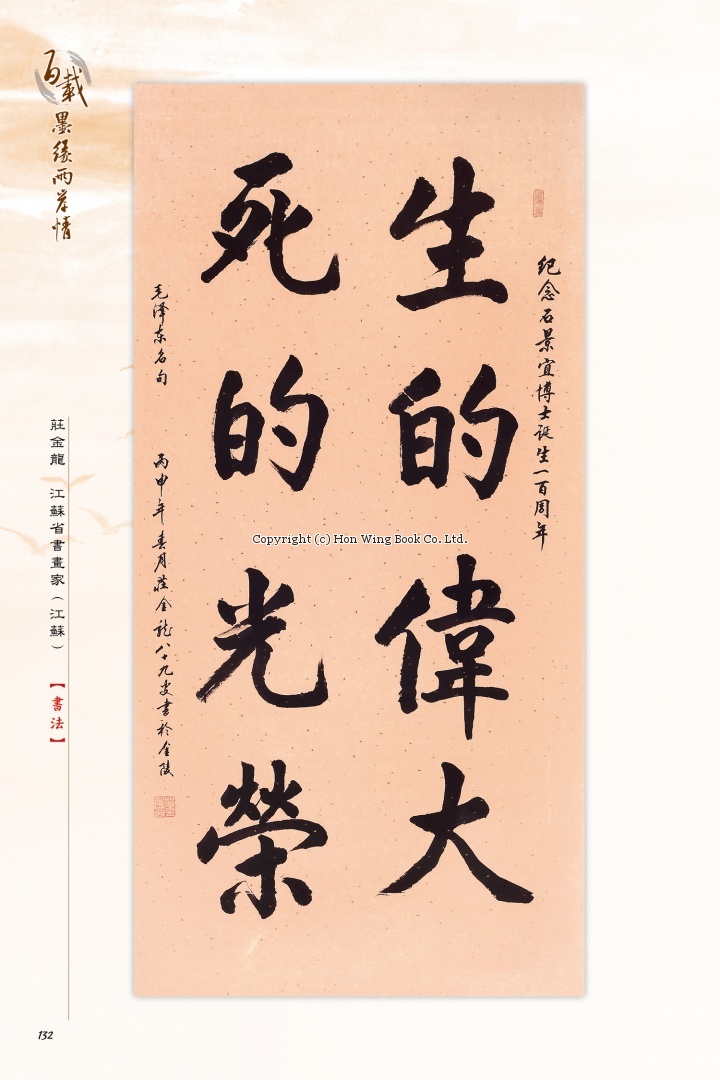 百載
墨緣兩岸情
纪念石景宜博士诞生一百周年
生的偉大
死的光榮
毛泽东名句
丙申年春月莊金龍八十九叟書於金陵
Copyright (c) Hon Wing Book Co. Ltd.
莊金龍 江蘇省書畫家（江蘇）
【書法】
132